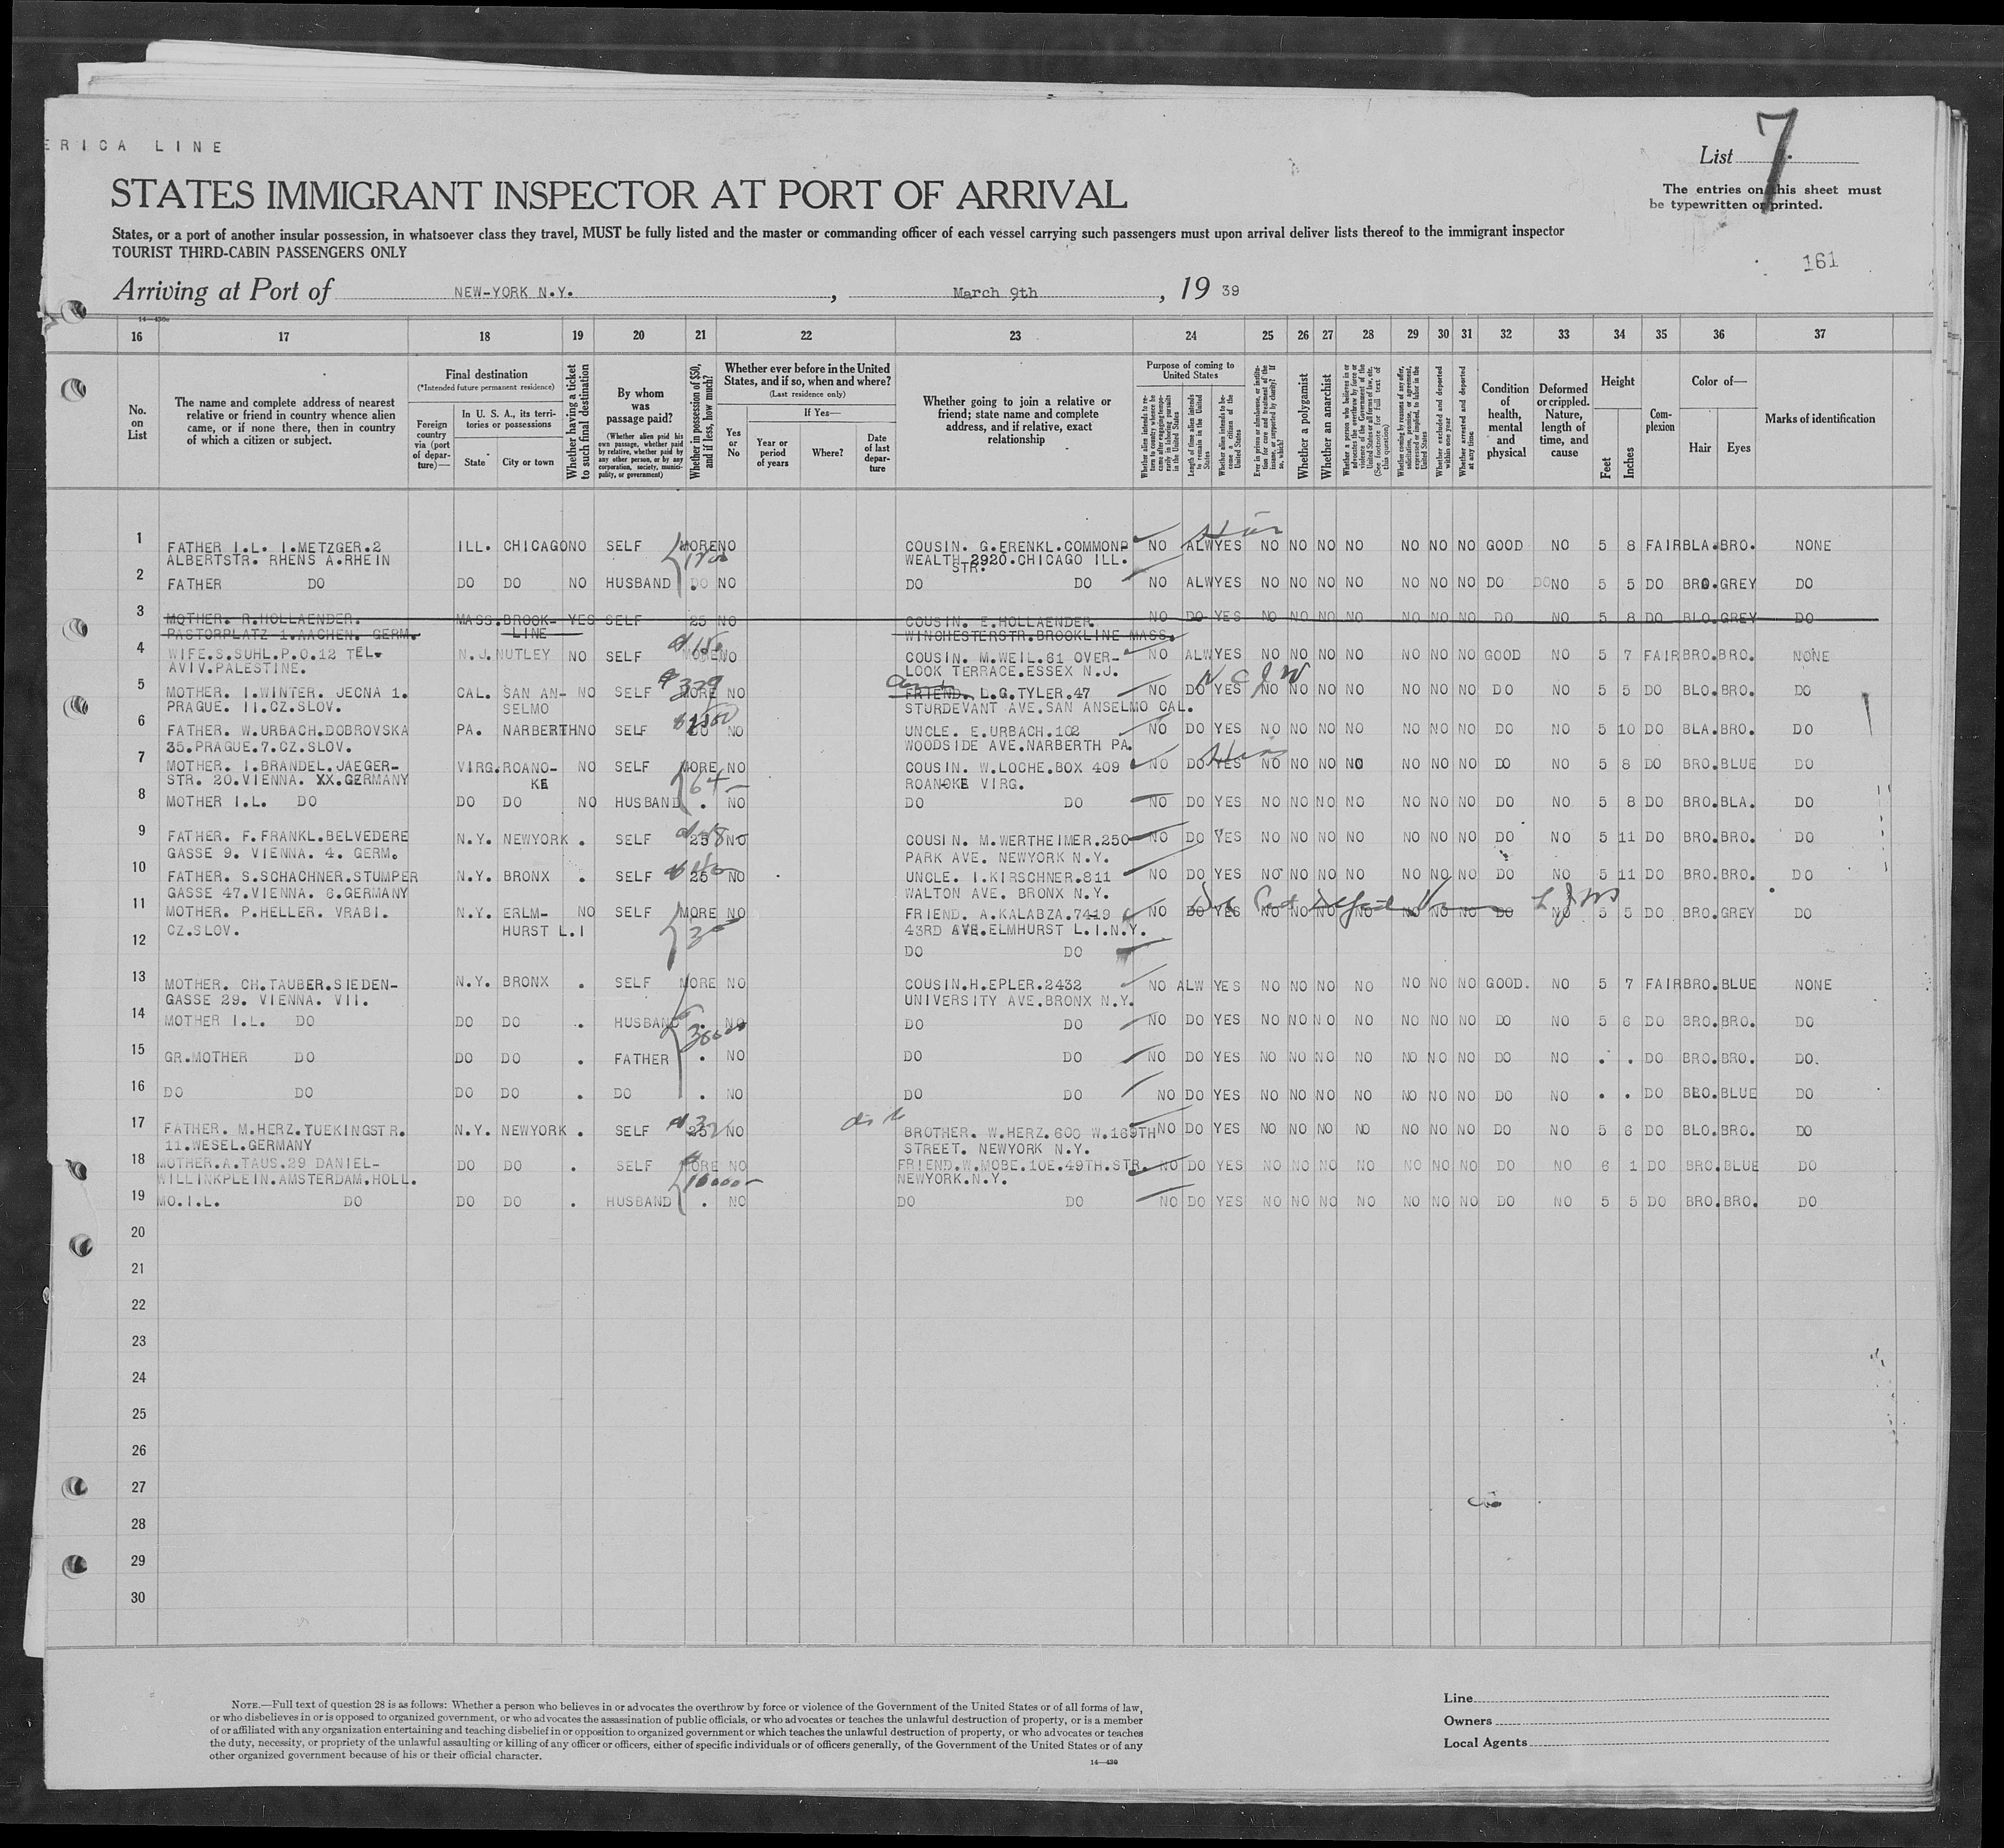 ERICA LINE
List 7
STATES IMMIGRANT INSPECTOR AT PORT OF ARRIVAL
The entries on this sheet must
be typewritten or printed.
States, or a port of another insular possession, in whatsoever class they travel, MUST be fully listed and the master or commanding officer of each vessel carrying such passengers must upon arrival deliver lists thereof to the immigrant inspector
TOURIST THIRD-CABIN PASSENGERS ONLY
161
Arriving at Port of NEW-YORK N.Y. , March 9th , 19 39
16 17 18 19 20 21 22 23 24 25 26 27 28 29 30 31 32 33 34 35 36 37
No. on List
The name and complete address of nearest relative or friend in country whence alien came, or if none there, then in country of which a citizen or subject.
Final destination
(*Intended future permanent residence)
Foreign country via (port of departure)—
In U. S. A., its territories or possessions
State
City or town
Whether having a ticket to such final destination
By whom was passage paid?
(Whether alien paid his own passage, whether paid by relative, whether paid by any other person, or by any corporation, society, municipality, or government)
Whether in possession of $50, and if less, how much?
Whether ever before in the United States, and if so, when and where?
(Last residence only)
Yes or No
If Yes—
Year or period of years
Where?
Date of last departure
Whether going to join a relative or friend; state name and complete address, and if relative, exact relationship
Purpose of coming to United States
Whether alien intends to return to country whence he came after engaging temporarily in laboring pursuits in the United States
Length of time alien intends to remain in the United States
Whether alien intends to become a citizen of the United States
Ever in prison or almshouse, or institution for care and treatment of the insane, or supported by charity? If so, which?
Whether a polygamist
Whether an anarchist
Whether a person who believes in or advocates the overthrow by force or violence of the Government of the United States or all forms of law, etc. (See footnote for full text of this question)
Whether coming by reason of any offer, solicitation, promise, or agreement, expressed or implied, to labor in the United States
Whether excluded and deported within one year
Whether arrested and deported at any time
Condition of health, mental and physical
Deformed or crippled. Nature, length of time, and cause
Height
Feet
Inches
Complexion
Color of—
Hair
Eyes
Marks of identification
1 FATHER I.L. I.METZGER.2 ILL. CHICAGO NO SELF MORE NO COUSIN. G.FRENKL.COMMONP NO ALW YES NO NO NO NO NO NO NO GOOD NO 5 8 FAIR BLA. BRO. NONE
ALBERTSTR. RHENS A.RHEIN WEALTH 2920.CHICAGO ILL.
STR.
2 FATHER DO DO DO NO HUSBAND DO NO DO DO NO ALW YES NO NO NO NO NO NO NO DO NO 5 5 DO BRO. GREY DO
3 MOTHER. R.HOLLAENDER. MASS. BROOK- YES SELF 25 NO COUSIN. E.HOLLAENDER. NO DO YES NO NO NO NO NO NO NO DO NO 5 8 DO BLO. GREY DO
PASTORPLATZ 1.AACHEN. GERM. LINE WINCHESTERSTR.BROOKLINE MASS.
4 WIFE.S.SUHL.P.O.12 TEL- N.J. NUTLEY NO SELF MORE NO COUSIN. M.WEIL.61 OVER- NO ALW YES NO NO NO NO NO NO NO GOOD NO 5 7 FAIR BRO. BRO. NONE
AVIV.PALESTINE. LOOK TERRACE.ESSEX N.J.
N C J W
5 MOTHER. I.WINTER. JECNA 1. CAL. SAN AN- NO SELF MORE NO FRIEND. L.G.TYLER.47 NO DO YES NO NO NO NO NO NO NO DO NO 5 5 DO BLO. BRO. DO
PRAGUE. II.CZ.SLOV. SELMO STURDEVANT AVE.SAN ANSELMO CAL.
6 FATHER. W.URBACH.DOBROVSKA PA. NARBERTH NO SELF NO UNCLE. E.URBACH.102 NO DO YES NO NO NO NO NO NO NO DO NO 5 10 DO BLA. BRO. DO
35.PRAGUE.7.CZ.SLOV. WOODSIDE AVE.NARBERTH PA.
7 MOTHER. I.BRANDEL.JAEGER- VIRG. ROANO- NO SELF MORE NO COUSIN. W.LOCHE.BOX 409 NO DO YES NO NO NO NO NO NO NO DO NO 5 8 DO BRO. BLUE DO
STR. 20.VIENNA. XX.GERMANY KE 64 ROANOKE VIRG.
8 MOTHER I.L. DO DO DO NO HUSBAND . NO DO DO NO DO YES NO NO NO NO NO NO NO DO NO 5 8 DO BRO. BLA. DO
9 FATHER. F.FRANKL.BELVEDERE N.Y. NEWYORK . SELF 25 NO COUSIN. M.WERTHEIMER.250 NO DO YES NO NO NO NO NO NO NO DO NO 5 11 DO BRO. BRO. DO
GASSE 9. VIENNA. 4. GERM. PARK AVE. NEWYORK N.Y.
10 FATHER. S.SCHACHNER.STUMPER N.Y. BRONX . SELF 25 NO UNCLE. I.KIRSCHNER.811 NO DO YES NO NO NO NO NO NO NO DO NO 5 11 DO BRO. BRO. DO
GASSE 47.VIENNA. 6.GERMANY WALTON AVE. BRONX N.Y.
11 MOTHER. P.HELLER. VRABI. N.Y. ERLM- NO SELF MORE NO FRIEND. A.KALABZA.7419 NO DO YES NO NO NO NO NO NO NO DO NO 5 5 DO BRO. GREY DO
CZ.SLOV. HURST L.I 43RD AVE.ELMHURST L.I.N.Y.
12 DO DO
13 MOTHER. CH.TAUBER.SIEDEN- N.Y. BRONX . SELF MORE NO COUSIN.H.EPLER.2432 NO ALW YES NO NO NO NO NO NO NO GOOD. NO 5 7 FAIR BRO. BLUE NONE
GASSE 29. VIENNA. VII. UNIVERSITY AVE.BRONX N.Y.
14 MOTHER I.L. DO DO DO . HUSBAND . NO DO DO NO DO YES NO NO NO NO NO NO NO DO NO 5 6 DO BRO. BRO. DO
15 GR.MOTHER DO DO DO . FATHER . NO DO DO NO DO YES NO NO NO NO NO NO NO DO NO . . DO BRO. BRO. DO.
16 DO DO DO DO . DO . NO DO DO NO DO YES NO NO NO NO NO NO NO DO NO . . DO BLO. BLUE DO
17 FATHER. M.HERZ.TUEKINGSTR. N.Y. NEWYORK . SELF 25 NO BROTHER. W.HERZ.600 W.169TH NO DO YES NO NO NO NO NO NO NO DO NO 5 6 DO BLO. BRO. DO
11.WESEL.GERMANY STREET. NEWYORK N.Y.
18 MOTHER.A.TAUS.29 DANIEL- DO DO . SELF MORE NO FRIEND.W.MOBE.10E.49TH.STR. NO DO YES NO NO NO NO NO NO NO DO NO 6 1 DO BRO. BLUE DO
WILLINKPLEIN.AMSTERDAM.HOLL. 10000- NEWYORK.N.Y.
19 MO.I.L. DO DO DO . HUSBAND . NO DO DO NO DO YES NO NO NO NO NO NO NO DO NO 5 5 DO BRO. BRO. DO
20
21
22
23
24
25
26
27
28
29
30
NOTE.—Full text of question 28 is as follows: Whether a person who believes in or advocates the overthrow by force or violence of the Government of the United States or of all forms of law,
or who disbelieves in or is opposed to organized government, or who advocates the assassination of public officials, or who advocates or teaches the unlawful destruction of property, or is a member
of or affiliated with any organization entertaining and teaching disbelief in or opposition to organized government or which teaches the unlawful destruction of property, or who advocates or teaches
the duty, necessity, or propriety of the unlawful assaulting or killing of any officer or officers, either of specific individuals or of officers generally, of the Government of the United States or of any
other organized government because of his or their official character.
14—430
Line
Owners
Local Agents